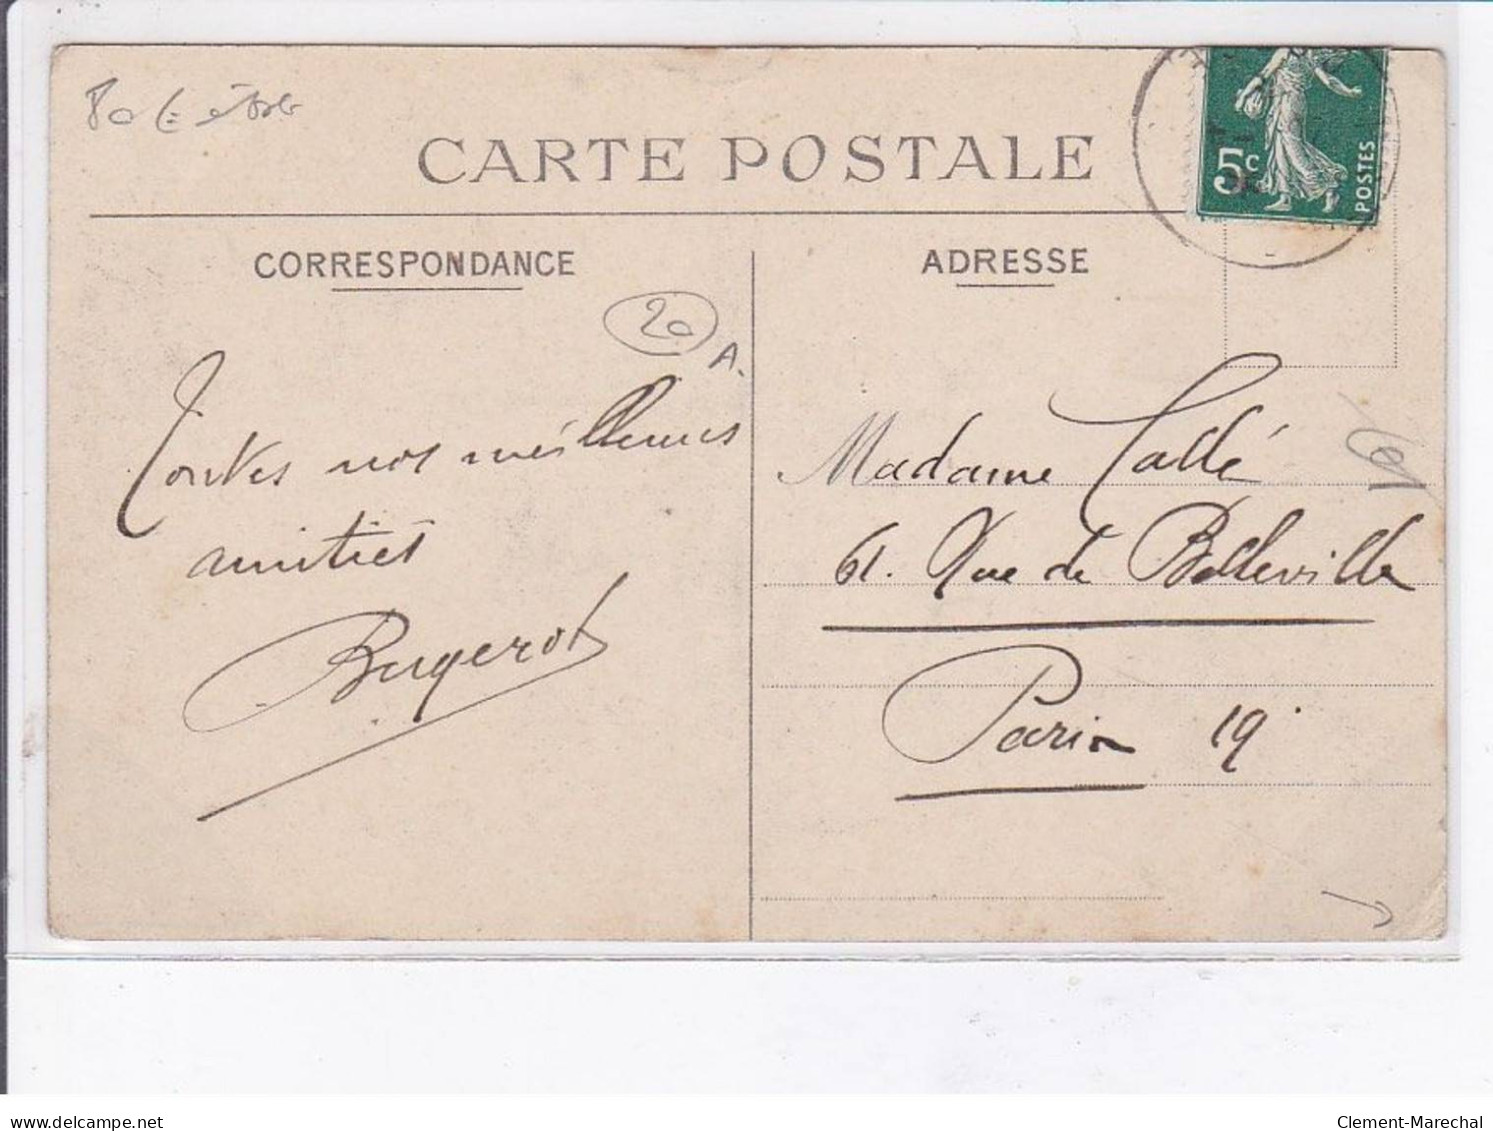 CARTE POSTALE
5c
POSTES
CORRESPONDANCE
ADRESSE
20
A.
Toutes nos meilleures
amitiés
Bugerot
Madame Callé
61. Rue de Belleville
Paris 19e
delcampe.net
Clement-Marechal